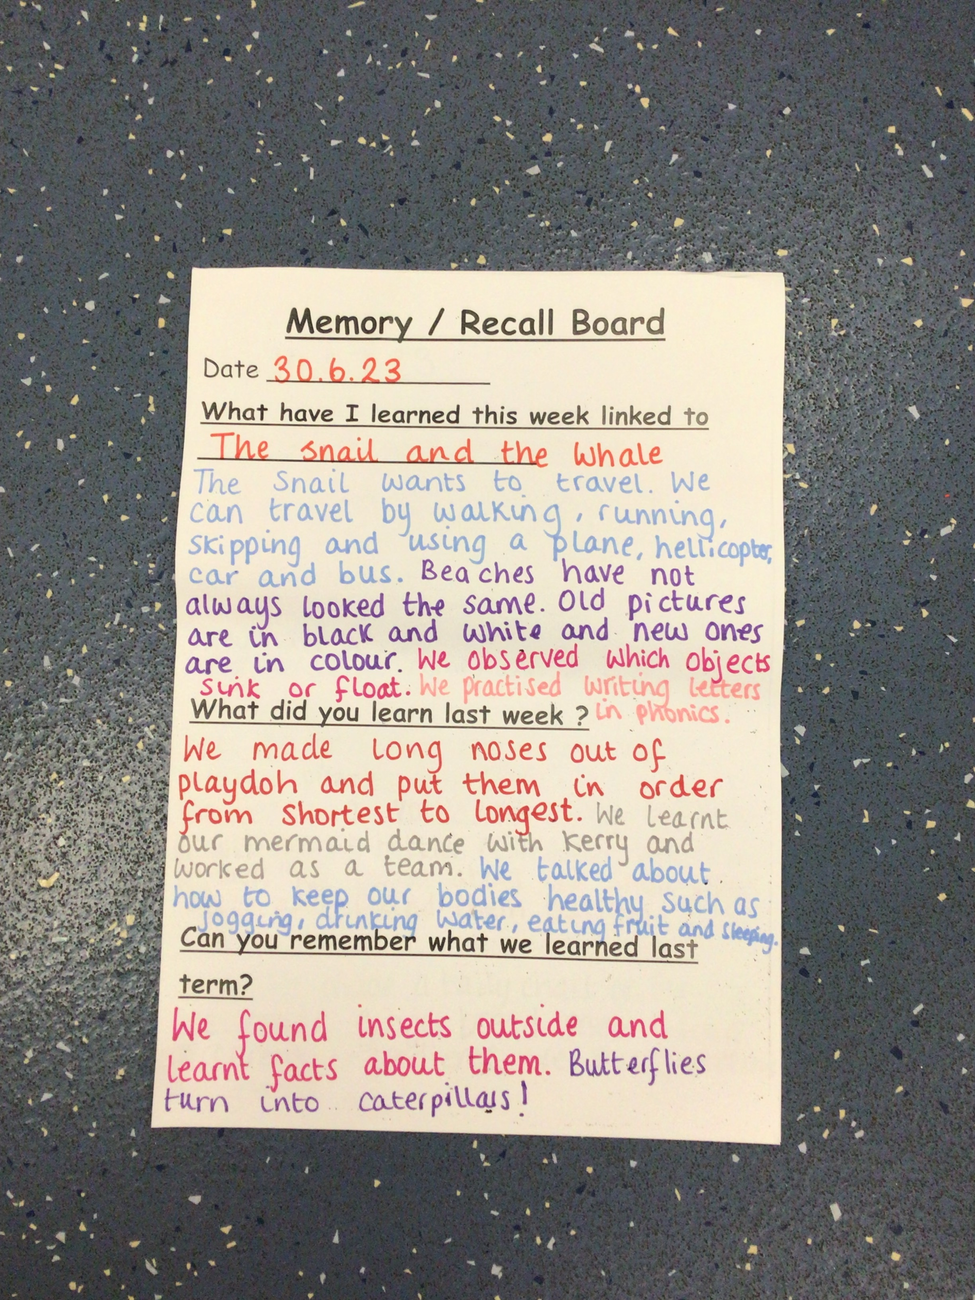 Memory / Recall Board
Date 30.6.23
What have I learned this week linked to
The snail and the whale
The Snail wants to travel. We
can travel by walking, running,
skipping and using a plane, hellicopter,
car and bus. Beaches have not
always looked the same. Old pictures
are in black and white and new ones
are in colour. We observed which objects
sink or float. We practised writing letters
in phonics.
What did you learn last week ?
We made long noses out of
playdoh and put them in order
from shortest to longest. We learnt
our mermaid dance with Kerry and
worked as a team. We talked about
how to keep our bodies healthy such as
jogging, drinking water, eating fruit and sleeping.
Can you remember what we learned last
term?
We found insects outside and
learnt facts about them. Butterflies
turn into caterpillars!